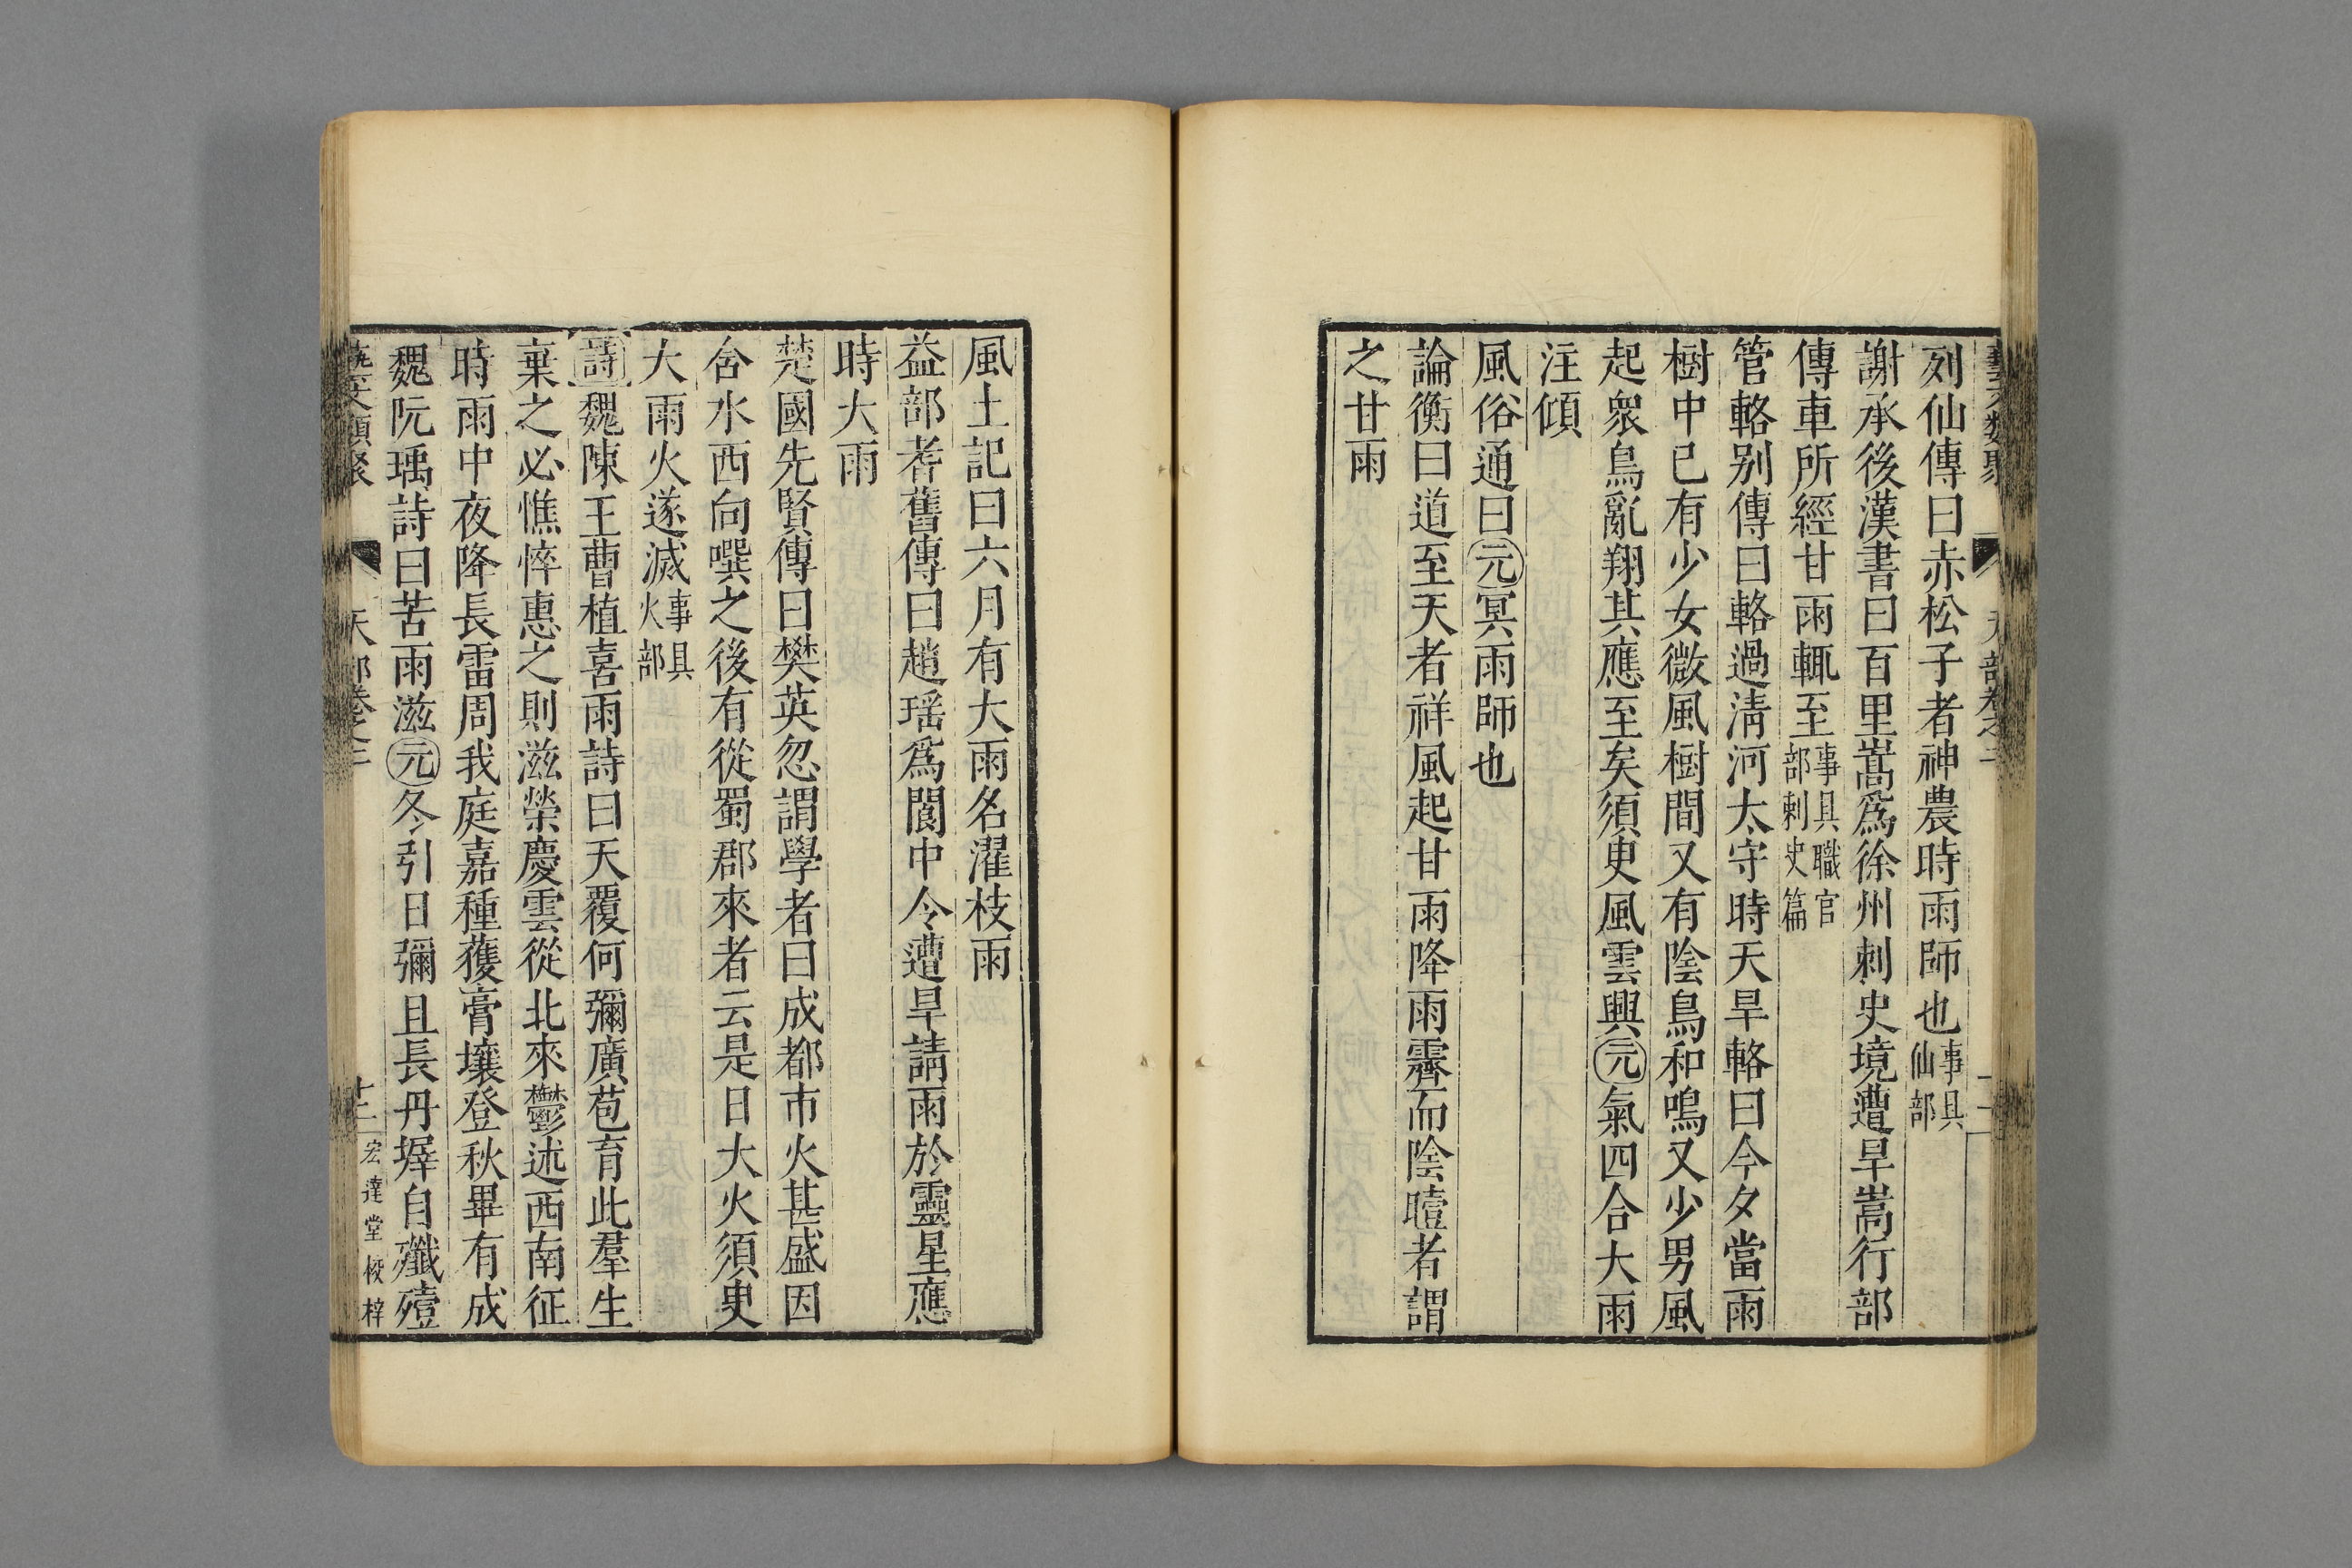 列仙傳曰赤松子者神農時雨師也事具仙部
謝承後漢書曰百里嵩爲徐州刺史境遭旱嵩行部
傳車所經甘雨輒至事具職官部刺史篇
管輅别傳曰輅過淸河太守時天旱輅曰今夕當雨
樹中已有少女微風樹間又有陰鳥和鳴又少男風
起衆鳥亂翔其應至矣須臾風雲興元氣四合大雨
注傾
風俗通曰元冥雨師也
論衡曰道至天者祥風起甘雨降雨霽而陰曀者謂
之甘雨
風土記曰六月有大雨名濯枝雨
益部耆舊傳曰趙瑶爲閬中令遭旱請雨於靈星應
時大雨
楚國先賢傳曰樊英忽謂學者曰成都市火甚盛因
含水西向噀之後有從蜀郡來者云是日大火須臾
大雨火遂滅事具火部
詩魏陳王曹植喜雨詩曰天覆何彌廣苞育此羣生
棄之必憔悴惠之則滋榮慶雲從北來鬱述西南征
時雨中夜降長雷周我庭嘉種穫膏壤登秋畢有成
魏阮瑀詩曰苦雨滋元冬引日彌且長丹墀自殲殪
藝文類聚
天部卷之二
十二
宏達堂校梓